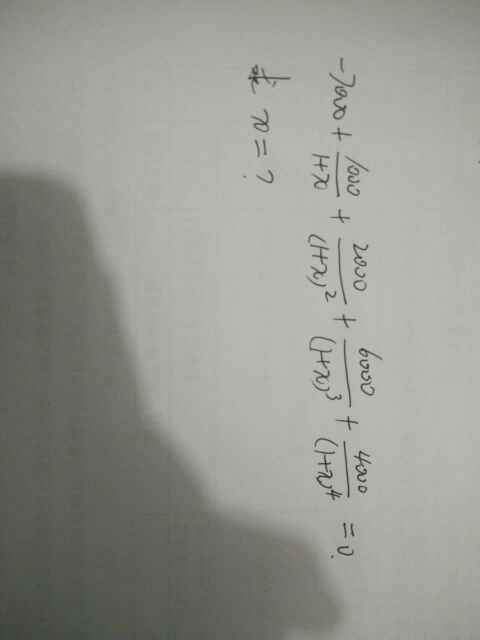 -7000 + 1000/(1+x) + 2000/(1+x)² + 6000/(1+x)³ + 4000/(1+x)⁴ = 0
求 x = ?